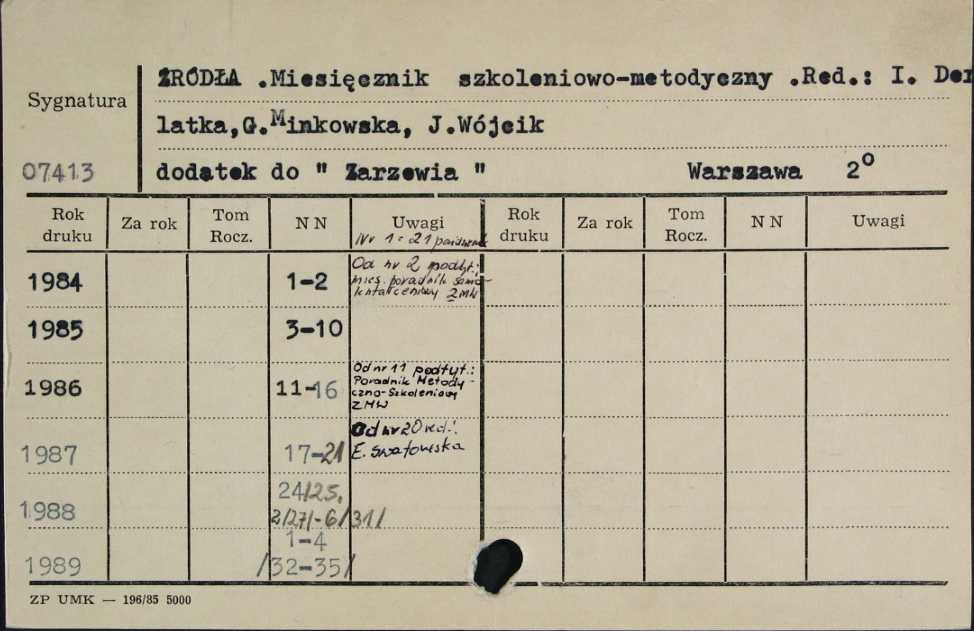 ŹRÓDŁA .Miesięcznik szkoleniowo-metodyczny .Red.: I. Der
Sygnatura
latka,G.Minkowska, J.Wójcik
07413 dodatek do " Zarzewia " Warszawa 2°
Rok druku Za rok Tom Rocz. N N Uwagi Rok druku Za rok Tom Rocz. N N Uwagi
Nr 1 = 21
1984 1-2 Od nr 2 podtyt.: mies. poradnik samokształceniowy ZMW
1985 3-10
1986 11-16 Od nr 11 podtyt.: Poradnik Metodyczno-Szkoleniowy ZMW
1987 17-21 Od nr 20 red.: E. Swatowska
1988 24/25, 2/27/-6/31/
1989 1-4 /32-35/
ZP UMK — 196/85 5000